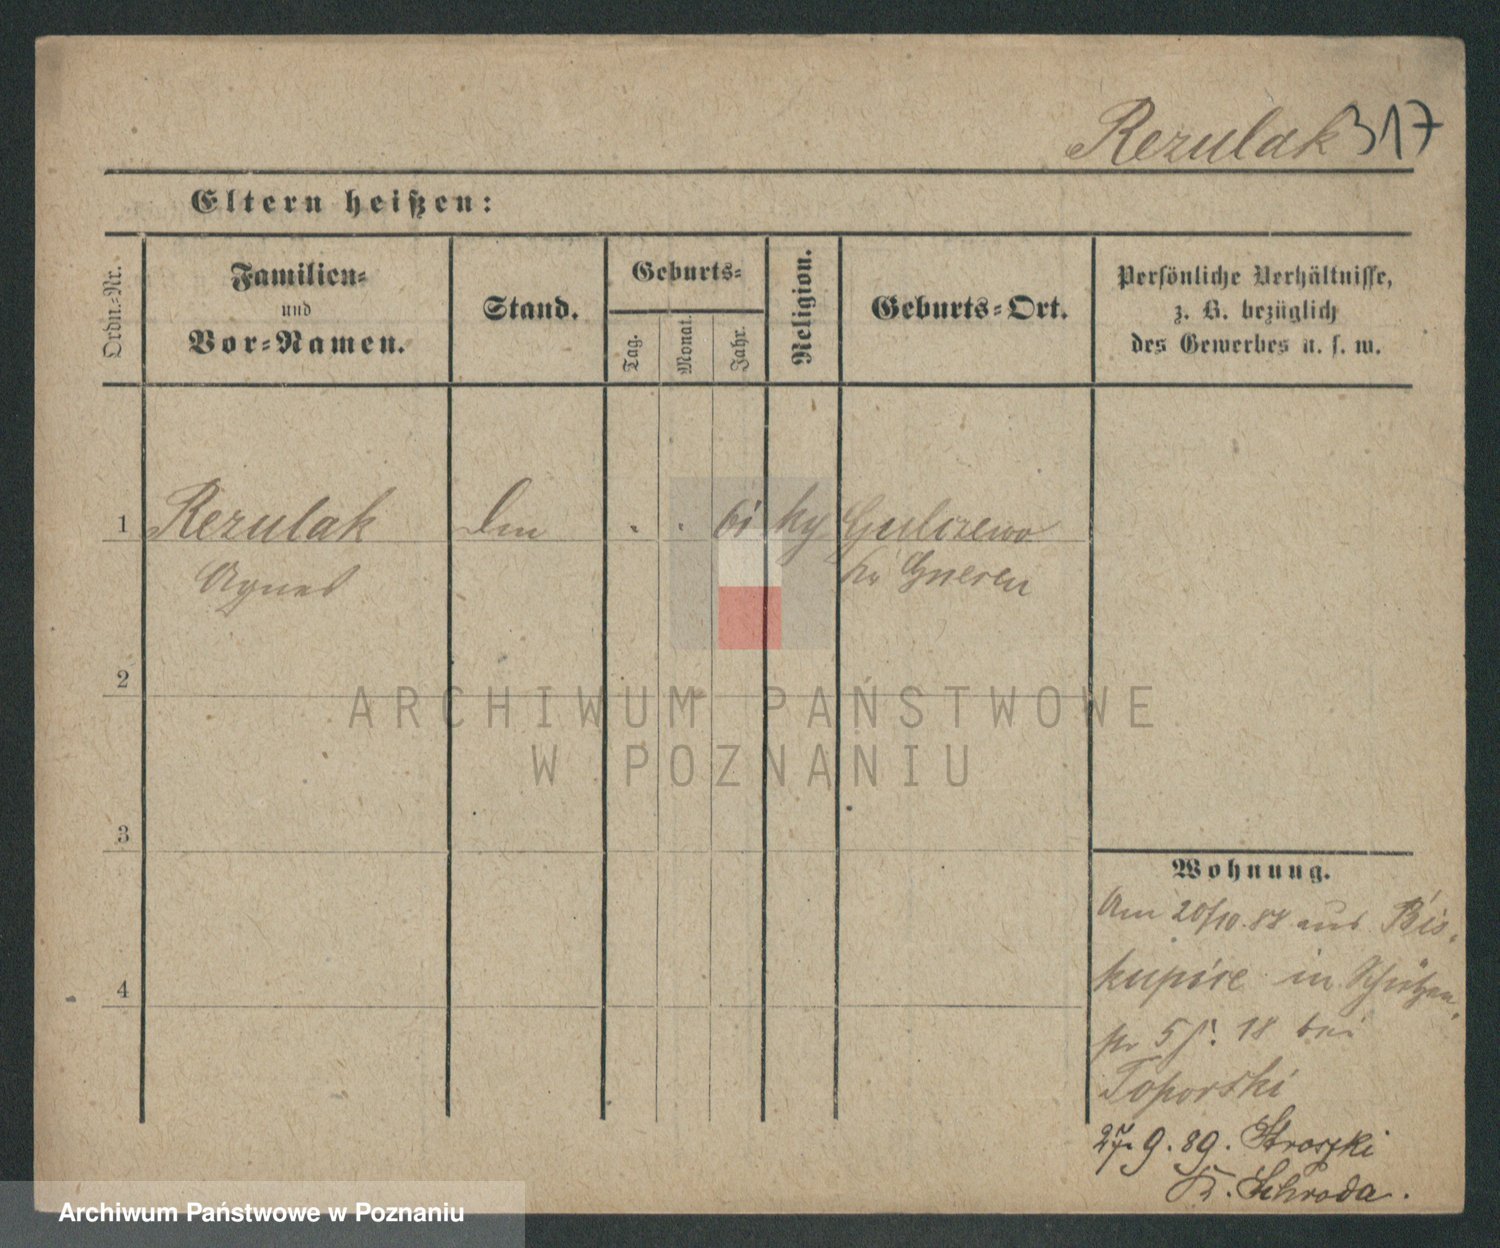 Rezulak 317
Eltern heißen:
Ordn.-Nr.
Familien-
und
Vor-Namen.
Stand.
Geburts-
Tag.
Monat.
Jahr.
Religion.
Geburts-Ort.
Persönliche Verhältnisse,
z. B. bezüglich
des Gewerbes u. s. w.
1 Rezulak Gulczewo
Agnes Kr Gnesen
2
3
4
Wohnung.
Am 20/10.88 aus Bis-
kupice in Schützen-
str 5 f. 18 bei
Toporski
27. 9. 89. Stroszki
K. Schroda.
ARCHIWUM PAŃSTWOWE
W POZNANIU
Archiwum Państwowe w Poznaniu